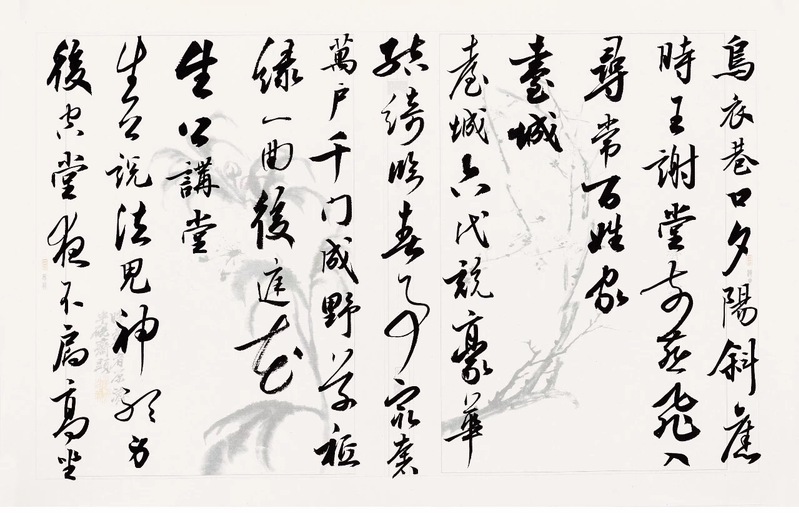 烏衣巷口夕陽斜舊
時王謝堂前燕飛入
尋常百姓家
臺城
臺城六代競豪華
結綺臨春事最奢
萬戶千門成野草祗
緣一曲後庭花
生公講堂
生公說法鬼神聽身
後空堂夜不扃高坐